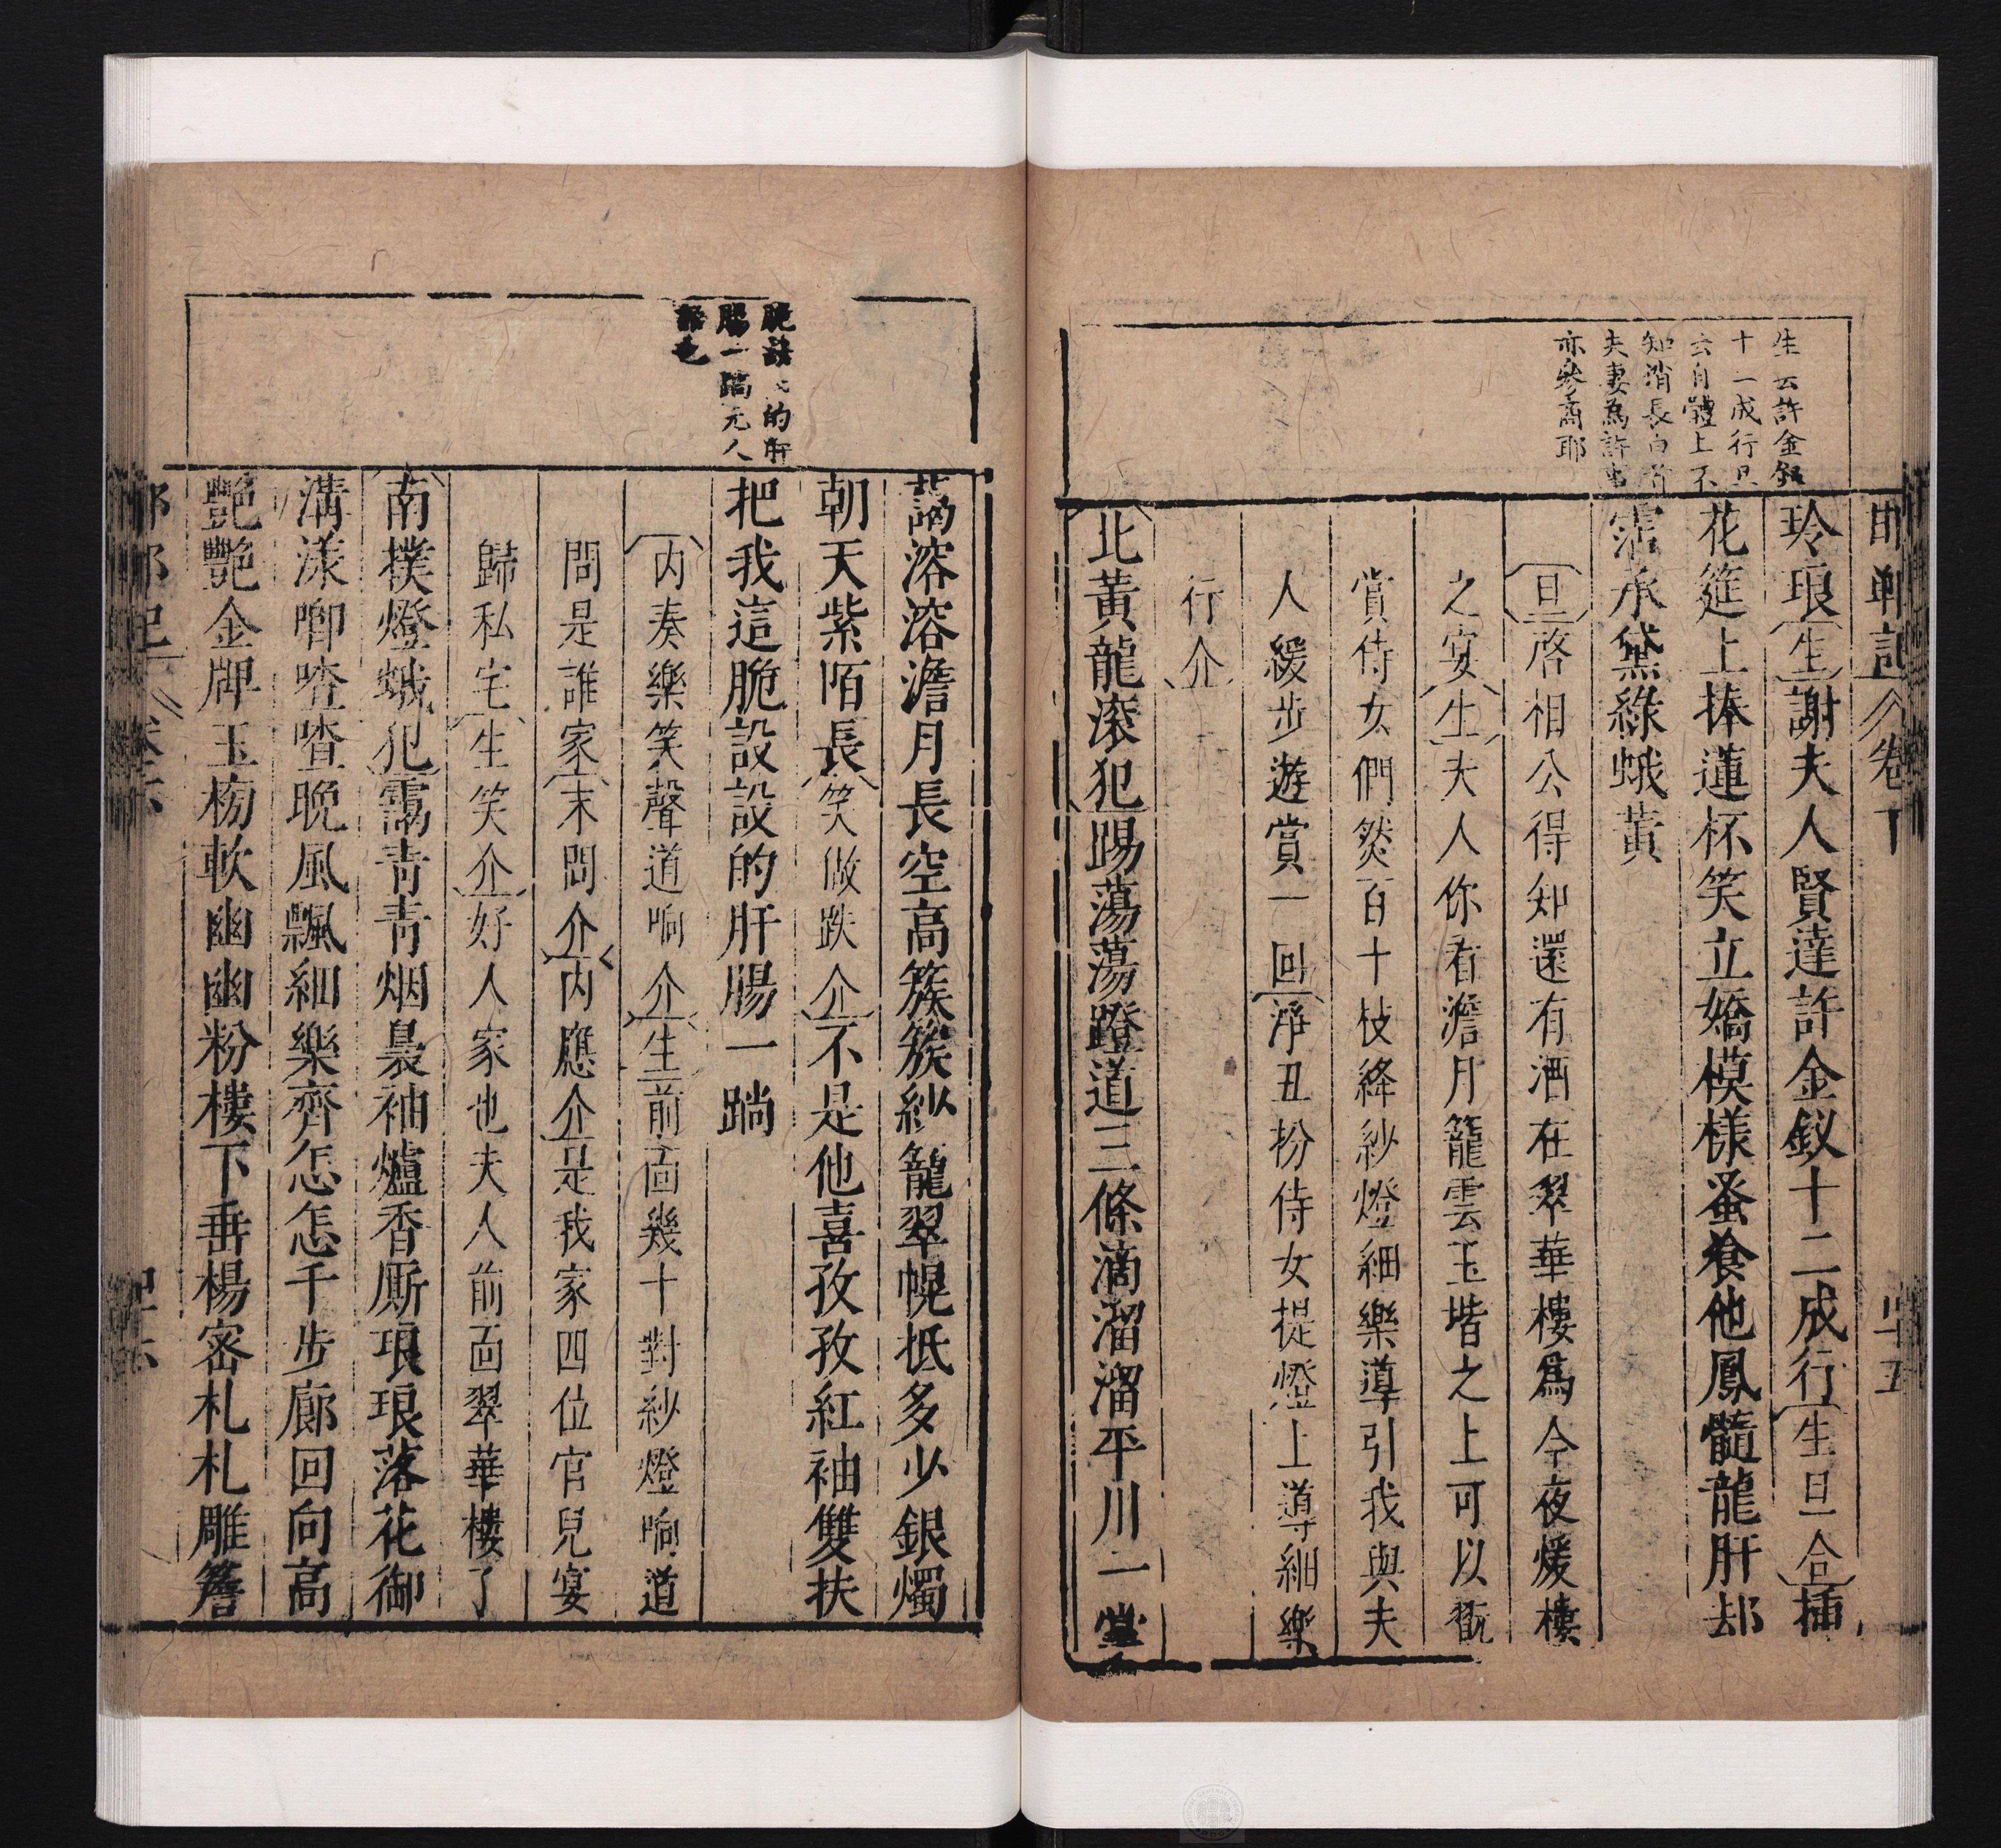 邯鄲記 卷下 四十五
生云許金釵
十二成行旦
云自體上不
夫妻為
亦參商耶
玲琅生謝夫人賢達許金釵十二成行生旦合插
花筵上捧蓮杯笑立嬌模樣蚤餋他鳳髓龍肝却
霑承黛綠蛾黃
旦啓相公得知還有酒在翠華樓爲今夜煖樓
之宴生夫人你看澹月籠雲玉堦之上可以翫
賞侍女們燃百十枝絳紗燈細樂導引我與夫
人緩步遊賞一回淨丑扮侍女提燈上導細樂
行介
北黃龍滚犯踢蕩蕩蹬道三條滴溜溜平川一堂
藹溶溶澹月長空高簇簇紗籠翠幌抵多少銀燭
朝天紫陌長笑做跌介不是他喜孜孜紅袖雙扶
把我這脆設設的肝腸一踹
内奏樂笑聲道响介生前面幾十對紗燈响道
問是誰家末問介内應介是我家四位官兒宴
歸私宅生笑介好人家也夫人前面翠華樓了
南撲燈蛾犯靄青青烟裊袖爐香厮琅琅落花御
溝漾啣喳喳晚風飄細樂齊怎怎千步廊回向高
艷艷金牌玉榜軟幽幽粉樓下垂楊密札札雕簷
的肝
腸一踹元人
語也
邯鄲記 卷下